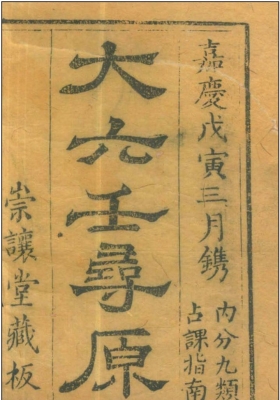 嘉慶戊寅三月鐫
內分九類
占課指南
大六壬尋原
崇讓堂藏板